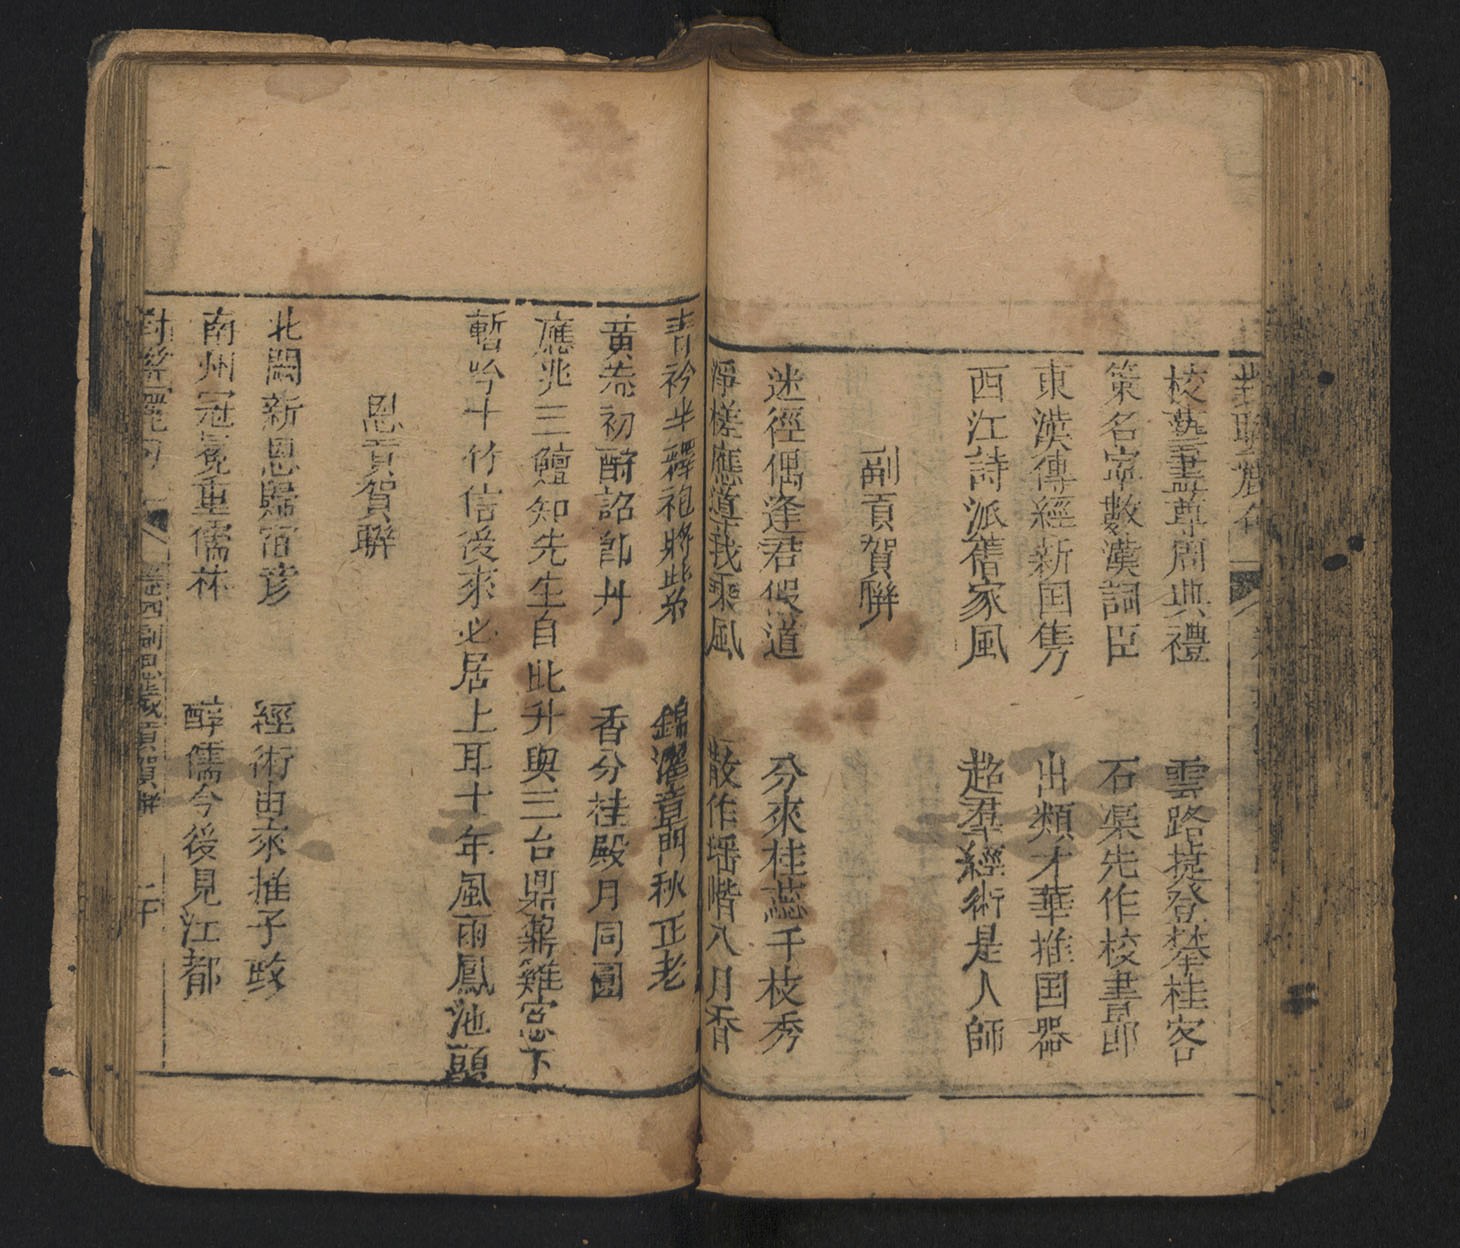 校藝盡尊周典禮　雲路捷登攀桂客
策名寧數漢詞臣　石渠先作校書郎
東漢傳經新国雋　出類才華推国器
西江詩派舊家風　超羣經術是人師
副貢賀聯
迷徑偶逢君假道　分來桂蕊千枝秀
浮槎應道我乘風　散作堦階八月香
青衿半釋袍將紫　錦濯章門秋正老
黃荼初酧詔卽丹　香分桂殿月同圓
應兆三鱣知先生自此升與三台鼎鼐雞窓下
暫吟十竹信後來必居上耳十年風雨鳳池頭
恩貢賀聯
北闕新恩歸宿彦　經術由來推子政
南州冠冕重儒林　醇儒今後見江都
對聯麗句　卷四副恩歲貢賀聯　二十